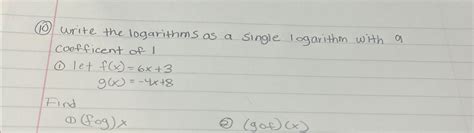 ⑩ write the logarithms as a single logarithm with a
coefficent of 1
① let f(x) = 6x + 3
g(x) = -4x + 8
Find
① (fog)x ② (gof)(x)